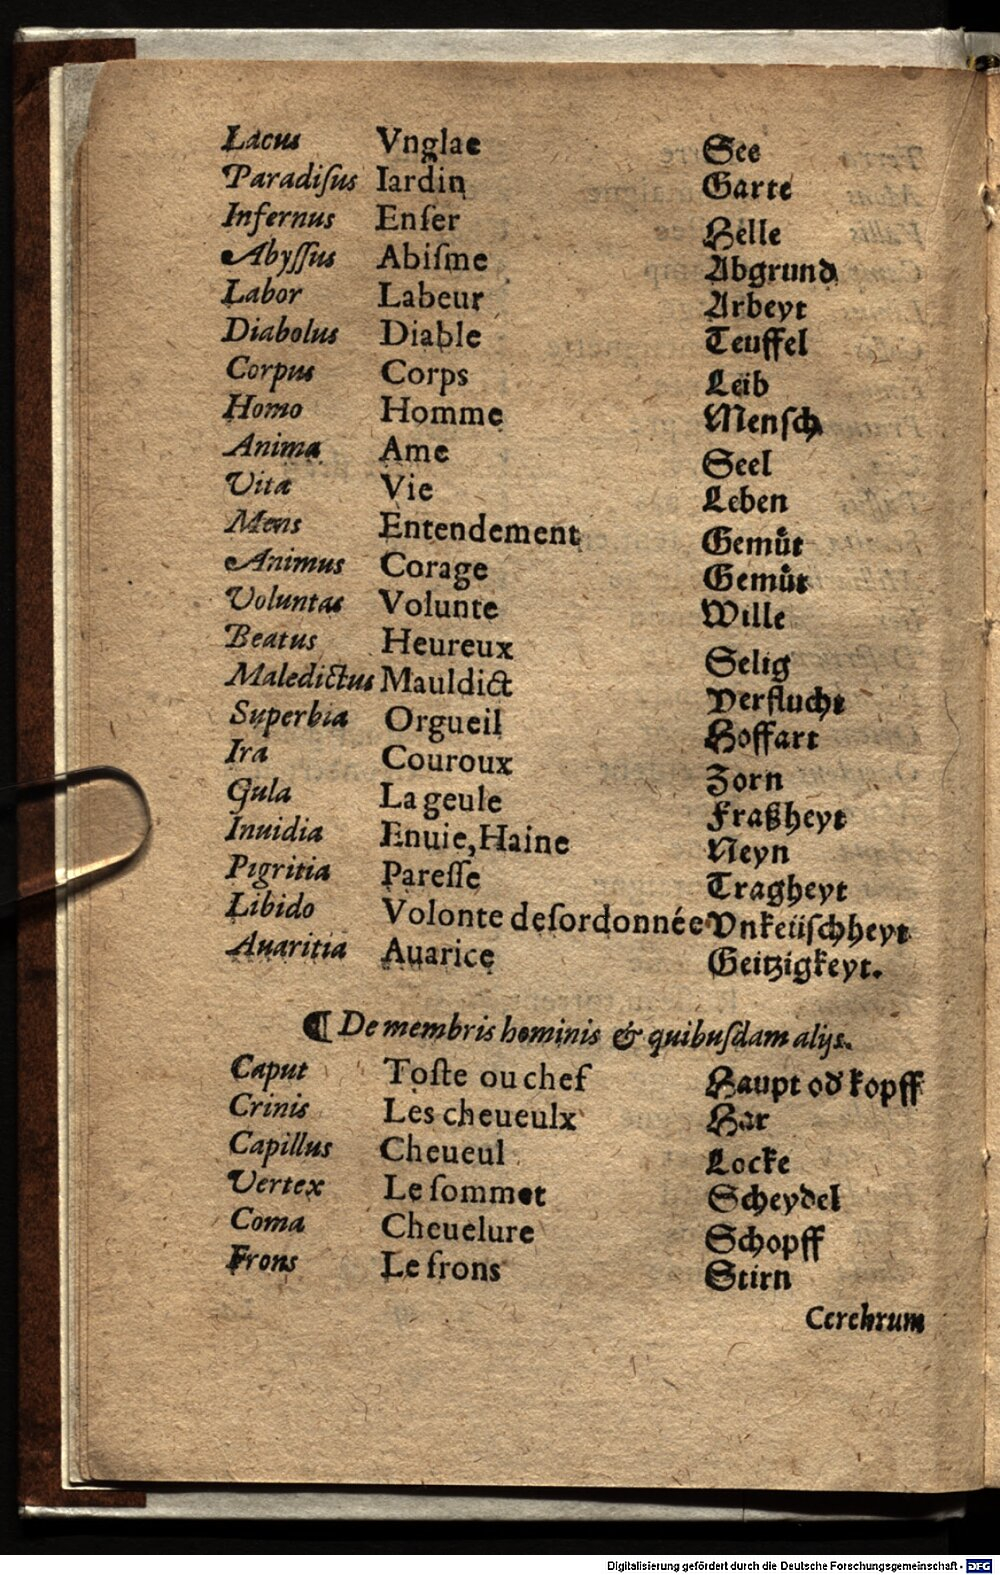 Lacus Vnglae See
Paradiſus Iardin Garte
Infernus Enfer Helle
Abyſſus Abiſme Abgrund
Labor Labeur Arbeyt
Diabolus Diable Teuffel
Corpus Corps Leib
Homo Homme Menſch
Anima Ame Seel
Vita Vie Leben
Mens Entendement Gemuͤt
Animus Corage Gemuͤt
Voluntas Volunte Wille
Beatus Heureux Selig
Maledictus Mauldict Verflucht
Superbia Orgueil Hoffart
Ira Couroux Zorn
Gula La geule Fraßheyt
Inuidia Enuie, Haine Neyn
Pigritia Pareſſe Tragheyt
Libido Volonte deſordonnée Vnkeüſchheyt
Auaritia Auarice Geitzigkeyt.
¶ De membris hominis & quibuſdam alijs.
Caput Toſte ou chef Haupt od kopff
Crinis Les cheueulx Har
Capillus Cheueul Locke
Vertex Le ſommet Scheydel
Coma Cheuelure Schopff
Frons Le frons Stirn
Cerebrum
Digitalisierung gefördert durch die Deutsche Forschungsgemeinschaft - DFG